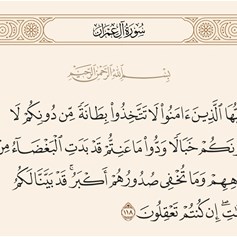 سُورَةُ آلِ عِمْرَانَ
بِسْمِ اللَّهِ الرَّحْمَٰنِ الرَّحِيمِ
يُّهَا الَّذِينَ ءَامَنُوا لَا تَتَّخِذُوا بِطَانَةً مِّن دُونِكُمْ لَا
ونَكُمْ خَبَالًا وَدُّوا مَا عَنِتُّمْ قَدْ بَدَتِ الْبَغْضَاءُ مِن
هِهِمْ وَمَا تُخْفِي صُدُورُهُمْ أَكْبَرُ قَدْ بَيَّنَّا لَكُمُ
تِ إِن كُنتُمْ تَعْقِلُونَ ١١٨